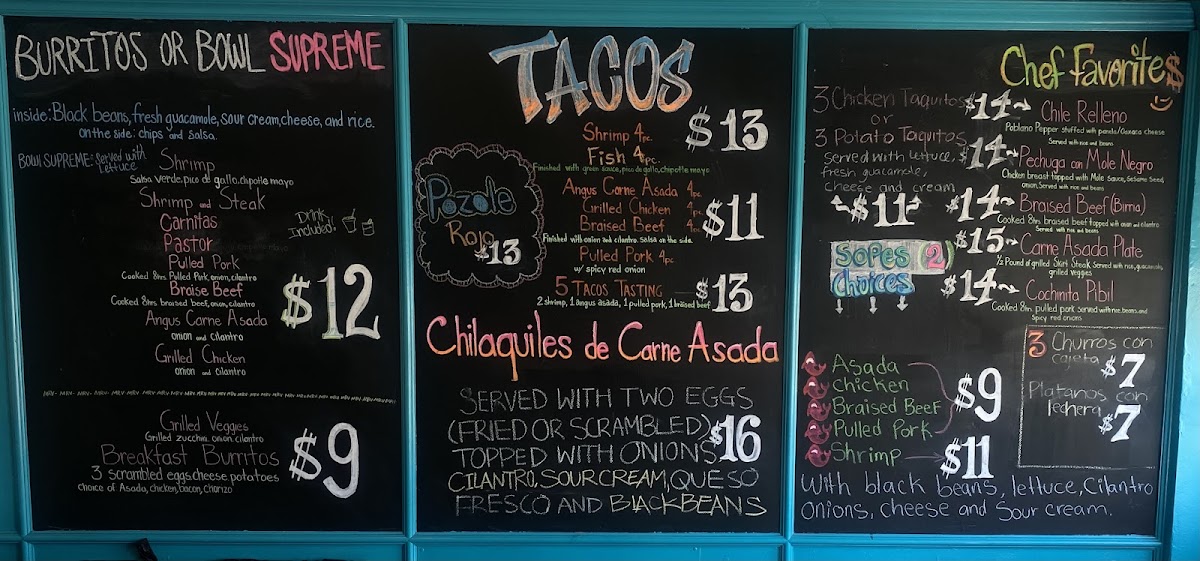 BURRITOS OR BOWL SUPREME
inside: Black beans, fresh guacamole, sour cream, cheese, and rice.
on the side: chips and salsa.
BOWL SUPREME: served with
Lettuce
Shrimp
Salsa verde, pico de gallo, chipotle mayo
Shrimp and Steak
Carnitas
Pastor
Pulled Pork
Cooked 8hrs. Pulled Pork, onion, cilantro
Braise Beef
Cooked 8hrs, braised beef, onion, cilantro
Angus Carne Asada
onion and cilantro
Grilled Chicken
onion and cilantro
Drink
Included!
$12
Grilled Veggies
Grilled zucchini, onion, cilantro
Breakfast Burritos
3 scrambled eggs, cheese, potatoes
choice of Asada, chicken, bacon, chorizo
$9
TACOS
Shrimp 4pc.
Fish 4pc.
$13
Finished with green sauce, pico de gallo, chipotle mayo
Angus Carne Asada 4pc.
Grilled Chicken 4pc.
Braised Beef 4pc.
$11
Finished with onion and cilantro. salsa on the side.
Pulled Pork 4pc.
w/ spicy red onion
5 TACOS TASTING $13
2 shrimp, 1 angus asada, 1 pulled pork, 1 braised beef
Pozole
Rojo
$13
Chilaquiles de Carne Asada
SERVED WITH TWO EGGS
(FRIED OR SCRAMBLED)
TOPPED WITH ONIONS
CILANTRO, SOUR CREAM, QUESO
FRESCO AND BLACKBEANS
$16
Chef Favorite$
3 Chicken Taquitos
or
3 Potato Taquitos
served with lettuce,
fresh guacamole,
cheese and cream
$11
$14 Chile Relleno
Poblano Pepper stuffed with panela/Oaxaca cheese
Served with rice and beans
$14 Pechuga con Mole Negro
Chicken breast topped with Mole sauce, Sesame Seed,
onion, Served with rice and beans
$14 Braised Beef (Birria)
Cooked 8hrs. braised beef topped with onion and cilantro
Served with rice and beans
$15 Carne Asada Plate
1/2 Pound of grilled Skirt Steak Served with rice, guacamole,
grilled veggies
$14 Cochinita Pibil
Cooked 8hrs. pulled pork served with rice, beans, and
spicy red onions
SOPES (2)
Choices
Asada
Chicken
Braised Beef
Pulled Pork
$9
Shrimp $11
With black beans, lettuce, Cilantro
onions, cheese and sour cream.
3 Churros con
cajeta
$7
Platanos con
lechera
$7